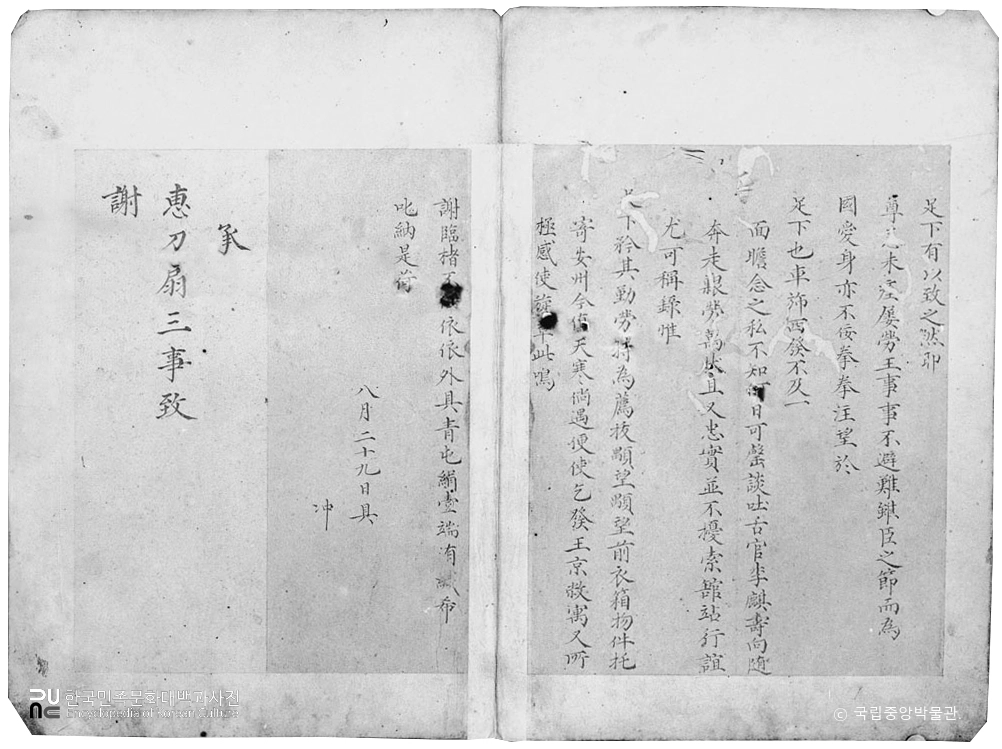 足下有以致之然耶
尊兄未涖屡勞王事事不避難雖臣之節而為
國愛身亦不佞拳拳注望於
足下也車斾西發不及一
面瞻念之私不知 日可罄談吐舌官李麒壽向隨
奔走艱勞萬狀且又忠實並不擾索舘站行誼
尤可稱錄惟
足下矜其勤勞特為薦拔顒望顒望前衣箱物件托
寄安州今 天寒倘遇便使乞發王京敝寓又所
極感使旋 此鳴
謝臨楮 依依外具青屯絹壹端洧 布
叱納是荷
八月二十九日具
冲
承
惠刀扇三事致
謝
한국민족문화대백과사전
Encyclopedia of Korean Culture
© 국립중앙박물관